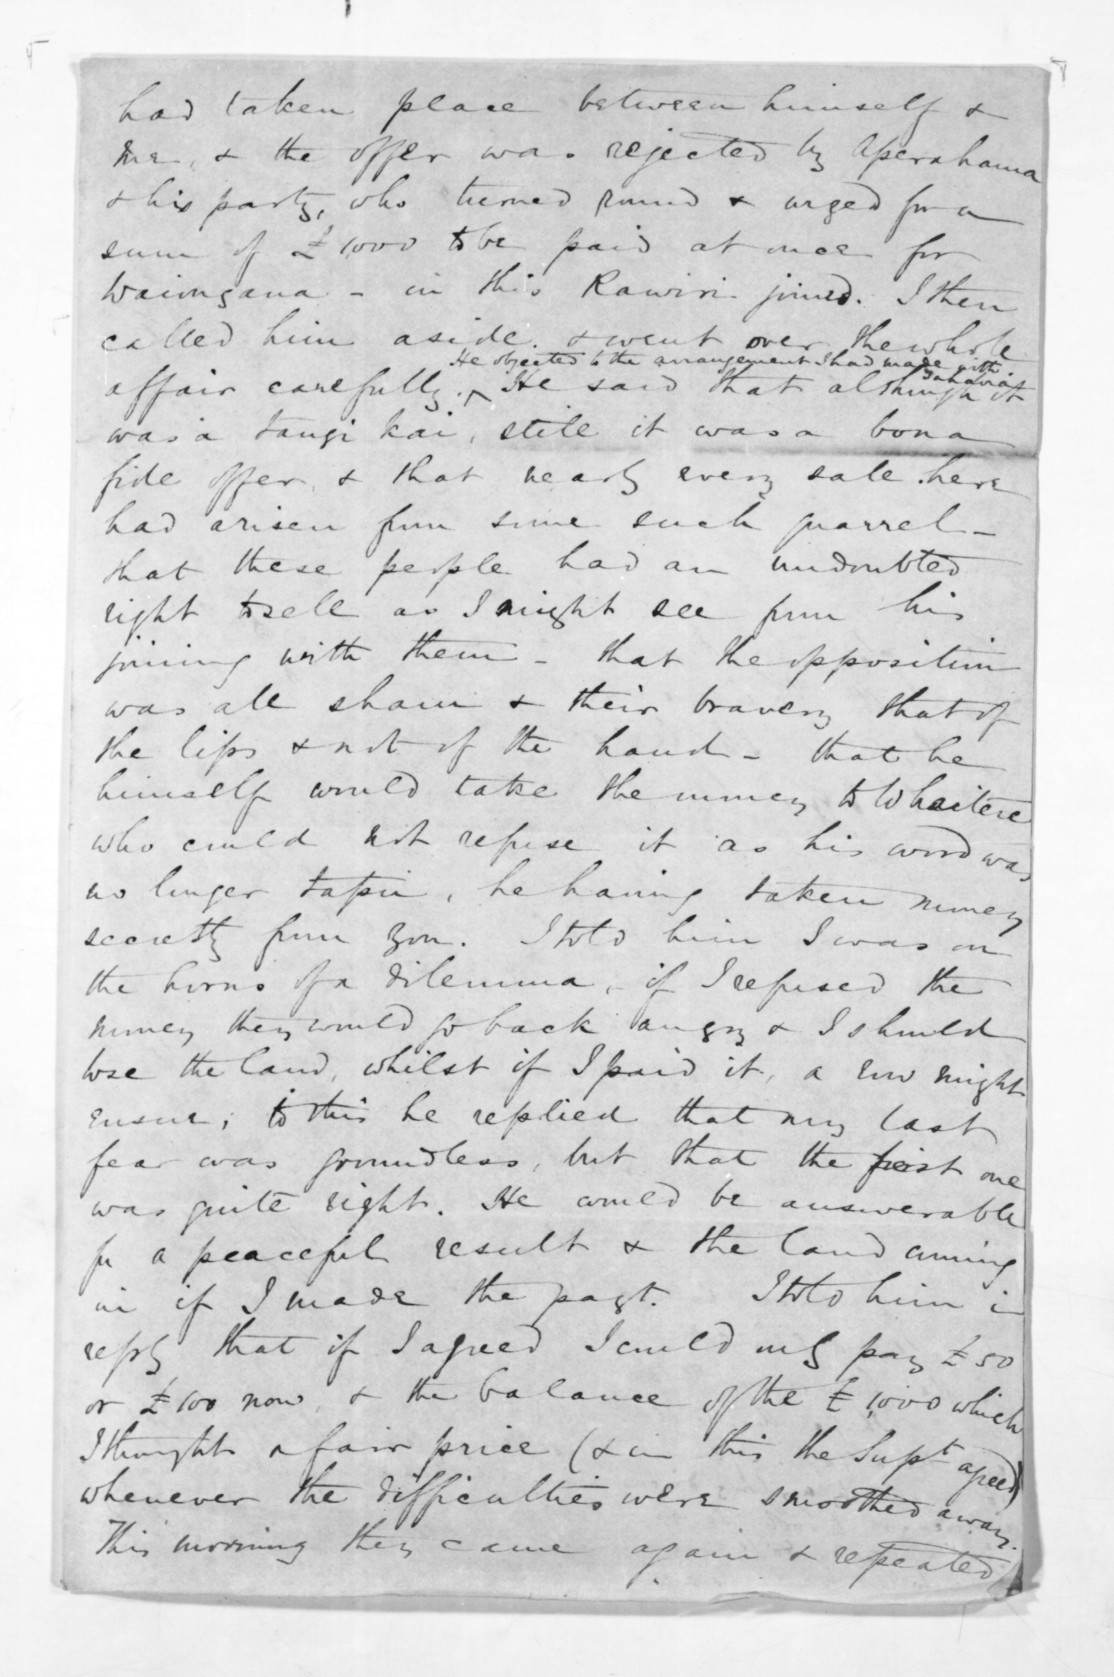 had taken place between himself &
me, & the offer was rejected by Aperahama
& his party, who turned round & urged for a
sum of £1000 to be paid at once for
Waiongana - in this Rawiri joined. I then
called him aside & went over the whole
affair carefully. He objected to the arrangement I had made with
He said that although it
was a taugi kai, still it was a bona
fide offer, & that nearly every sale here
had arisen from some such quarrel -
that these people had an undoubted
right to sell as I might see from his
joining with them - that the opposition
was all sham & their bravery that of
the lips & not of the hand - that he
himself would take the money to Whaitere
who could not refuse it as his word was
no longer tapu, he having taken money
secretly from you. I told him I was on
the horns of a dilemma, - if I refused the
money they would go back angry & I should
lose the land, whilst if I paid it, a row might
ensue; to this he replied that my last
fear was groundless, but that the first one
was quite right. He would be answerable
for a peaceful result & the land coming
in if I made the payt. I told him in
reply that if I agreed I could only pay £50
or £100 now, & the balance of the £1,000 which
I thought a fair price (& in this the Supt agreed)
whenever the difficulties were smoothed away.
This morning they came again & repeated